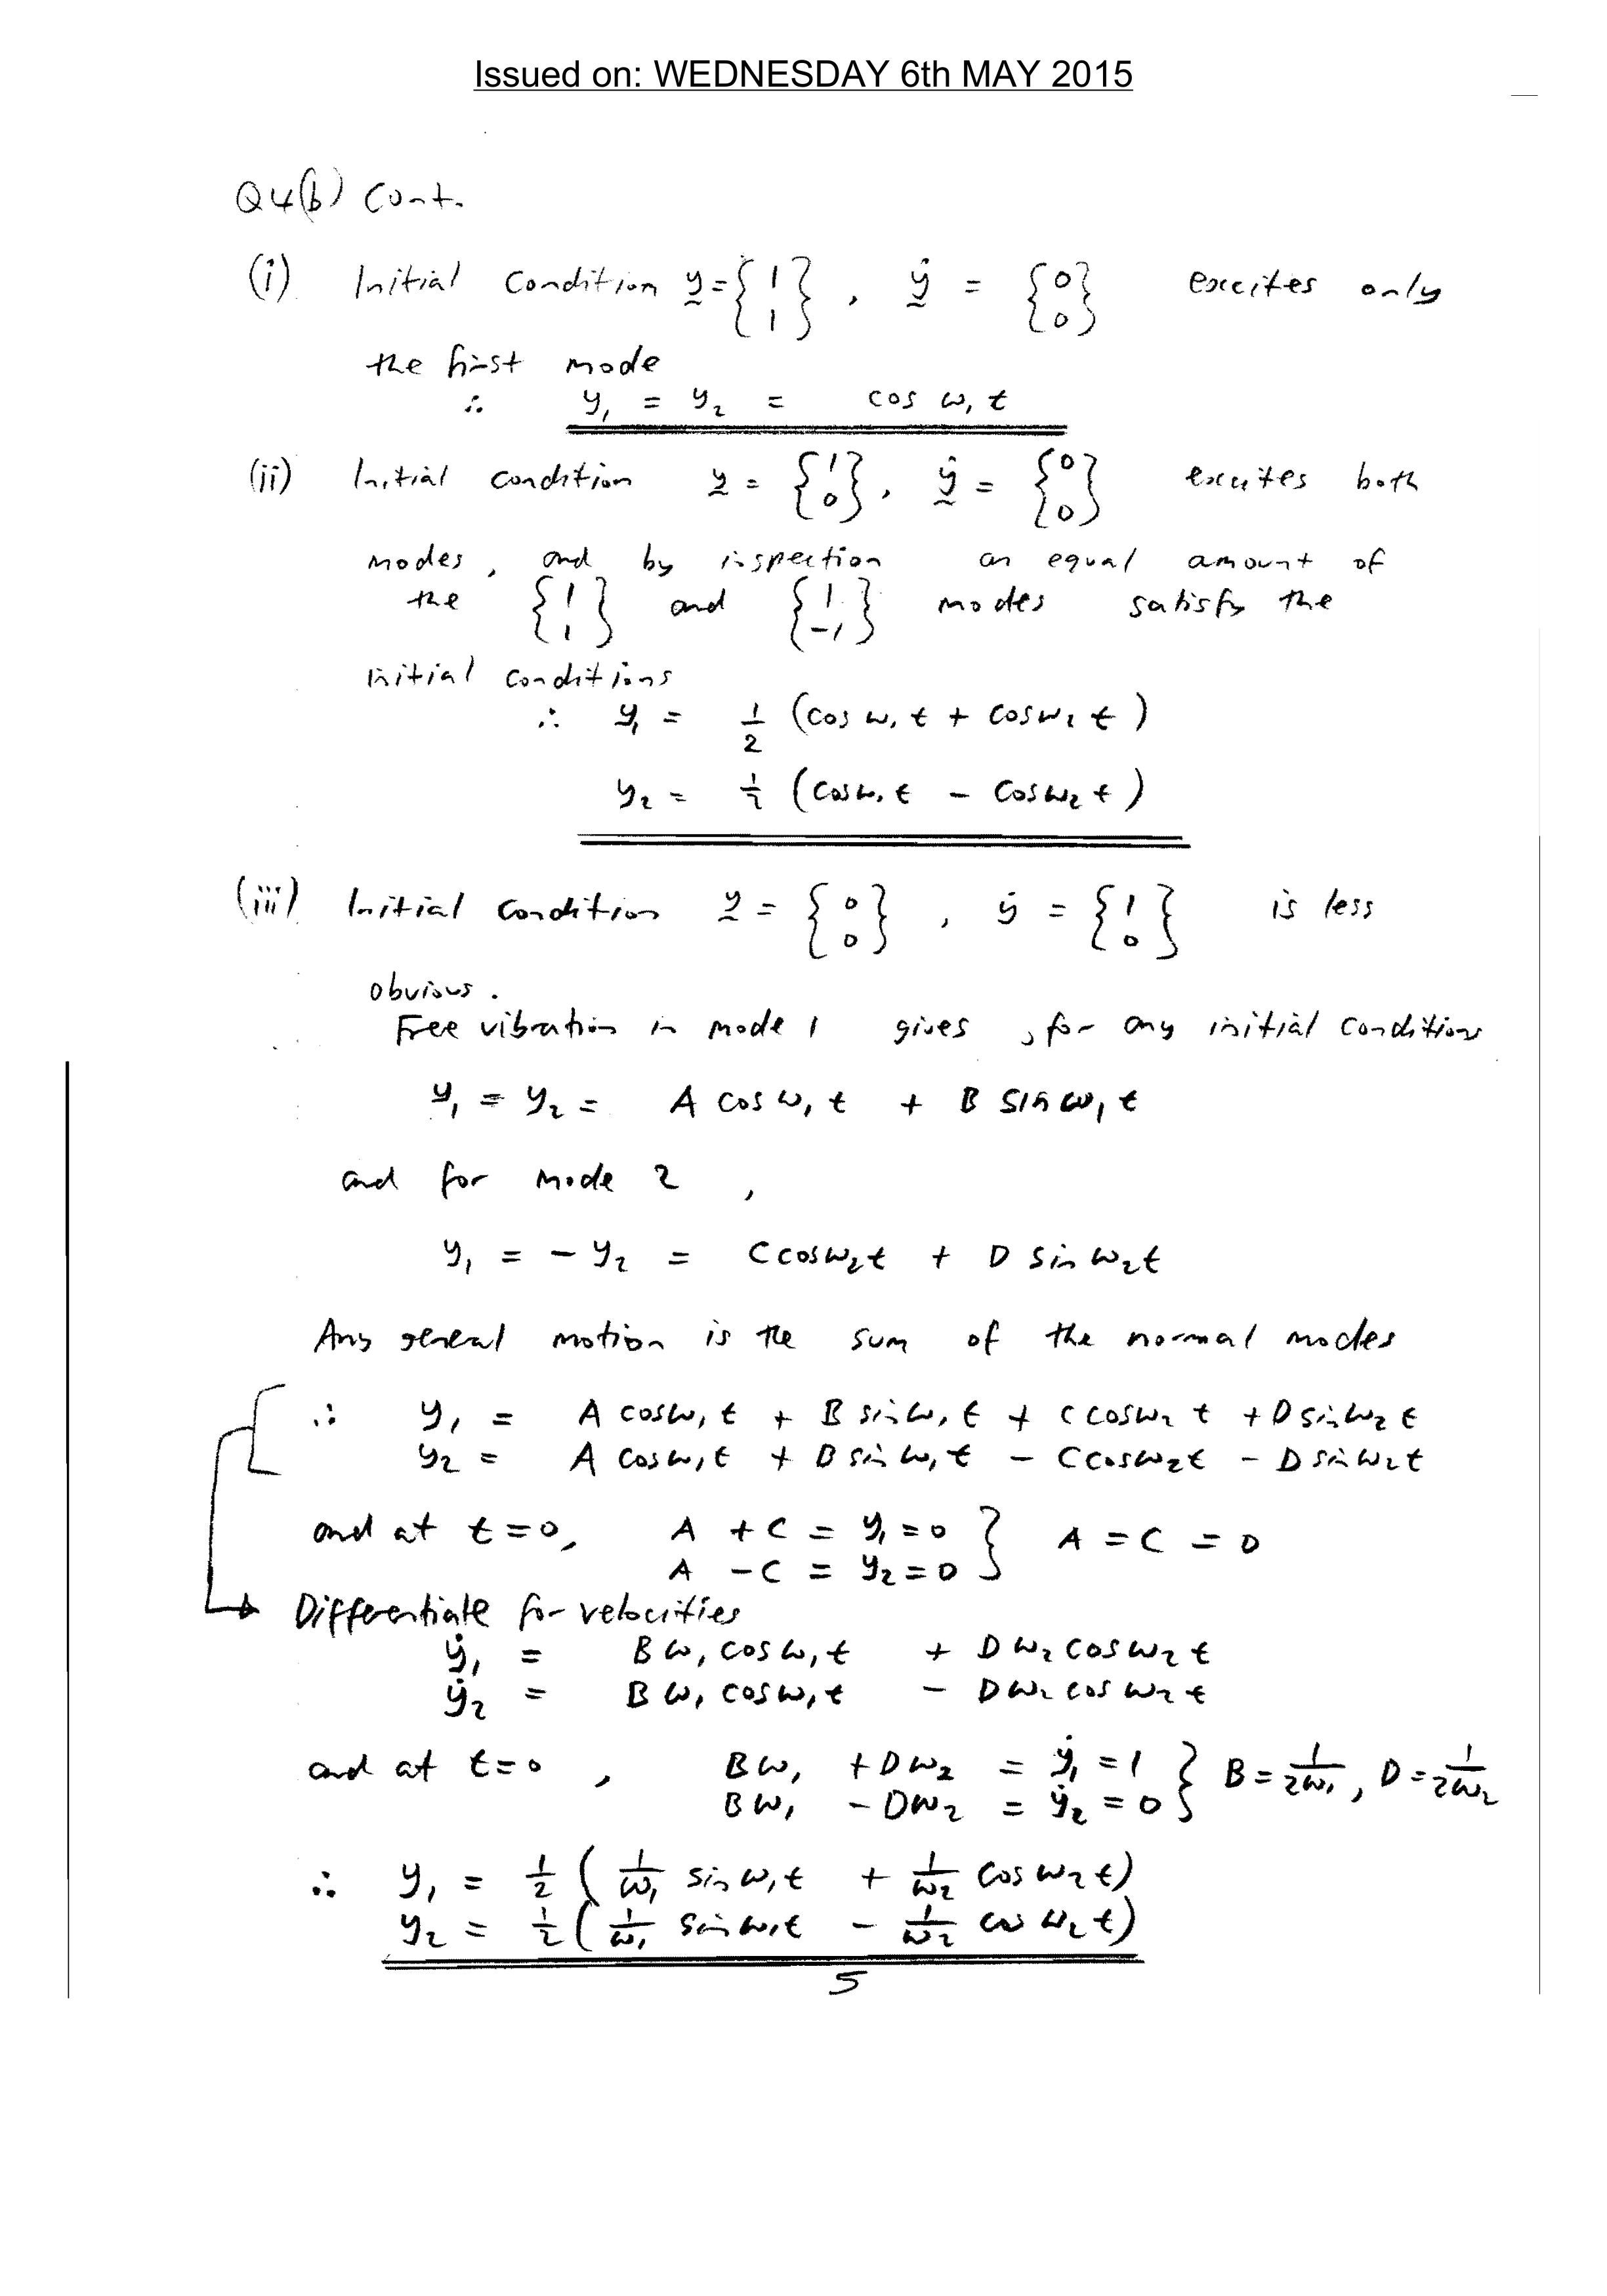 Issued on: WEDNESDAY 6th MAY 2015
Q4(b) Cont.
(i) Initial Condition y = {1 1}, ẏ = {0 0} excites only
the first mode
∴ y₁ = y₂ = cos ω₁t
(ii) Initial condition y = {1 0}, ẏ = {0 0} excites both
modes, and by inspection an equal amount of
the {1 1} and {1 -1} modes satisfy the
initial conditions
∴ y₁ = 1/2 (cos ω₁t + cos ω₂t)
y₂ = 1/2 (cos ω₁t - cos ω₂t)
(iii) Initial condition y = {0 0}, ẏ = {1 0} is less
obvious.
Free vibration in mode 1 gives, for any initial conditions
y₁ = y₂ = A cos ω₁t + B sin ω₁t
and for mode 2,
y₁ = -y₂ = C cos ω₂t + D sin ω₂t
Any general motion is the sum of the normal modes
∴ y₁ = A cos ω₁t + B sin ω₁t + C cos ω₂t + D sin ω₂t
y₂ = A cos ω₁t + B sin ω₁t - C cos ω₂t - D sin ω₂t
and at t=0, A + C = y₁ = 0 } A = C = 0
A - C = y₂ = 0
→ Differentiate for velocities
ẏ₁ = Bω₁ cos ω₁t + Dω₂ cos ω₂t
ẏ₂ = Bω₁ cos ω₁t - Dω₂ cos ω₂t
and at t=0, Bω₁ + Dω₂ = ẏ₁ = 1 } B = 1/2ω₁, D = 1/2ω₂
Bω₁ - Dω₂ = ẏ₂ = 0
∴ y₁ = 1/2 (1/ω₁ sin ω₁t + 1/ω₂ cos ω₂t)
y₂ = 1/2 (1/ω₁ sin ω₁t - 1/ω₂ cos ω₂t)
5